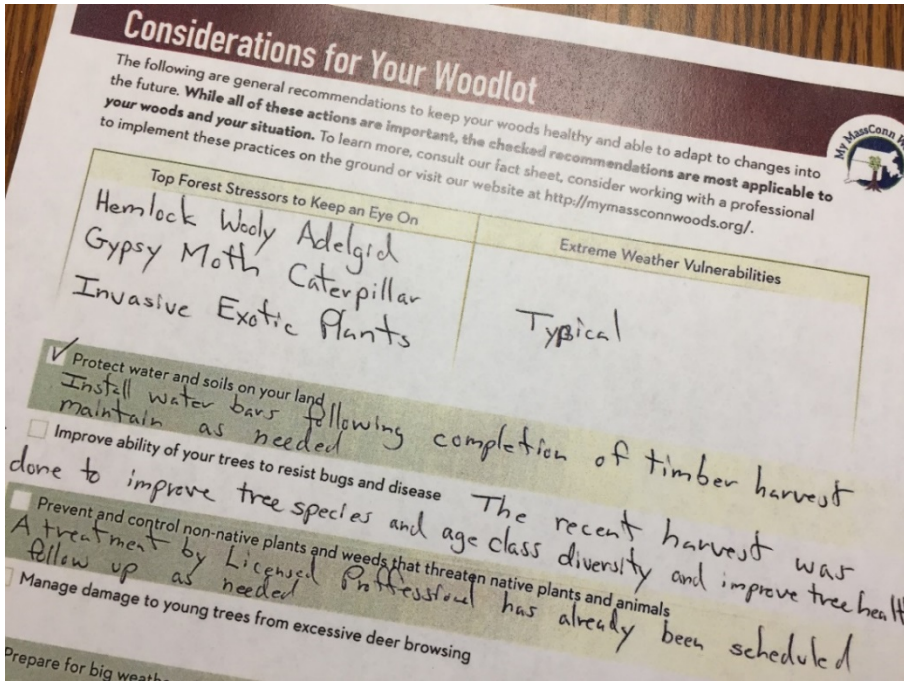 Considerations for Your Woodlot
The following are general recommendations to keep your woods healthy and able to adapt to changes into
the future. While all of these actions are important, the checked recommendations are most applicable to
your woods and your situation. To learn more, consult our fact sheet, consider working with a professional
to implement these practices on the ground or visit our website at http://mymassconnwoods.org/.
My MassConn W
Top Forest Stressors to Keep an Eye On
Hemlock Wooly Adelgid
Gypsy Moth Caterpillar
Invasive Exotic Plants
Extreme Weather Vulnerabilities
Typical
Protect water and soils on your land
Install water bars following completion of timber harvest
maintain as needed
Improve ability of your trees to resist bugs and disease The recent harvest was
done to improve tree species and age class diversity and improve tree healt
Prevent and control non-native plants and weeds that threaten native plants and animals
A treatment by Licensed Proffessional has already been scheduled
follow up as needed
Manage damage to young trees from excessive deer browsing
Prepare for big weath